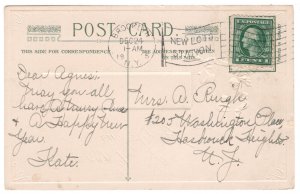 POST CARD
THIS SIDE FOR CORRESPONDENCE
THE ADDRESS TO BE WRITTEN ON THIS SIDE
DEC 24
1-AM
N.Y.
NEW LOTS
STATION
1 CENT 1
Dear Agnes:
May you all
have a Merry Xmas
& A Happy New
Year
Kate.
Mrs. A. Pugh
#200 Washington Place
Hasbrouck Heights
N.J.